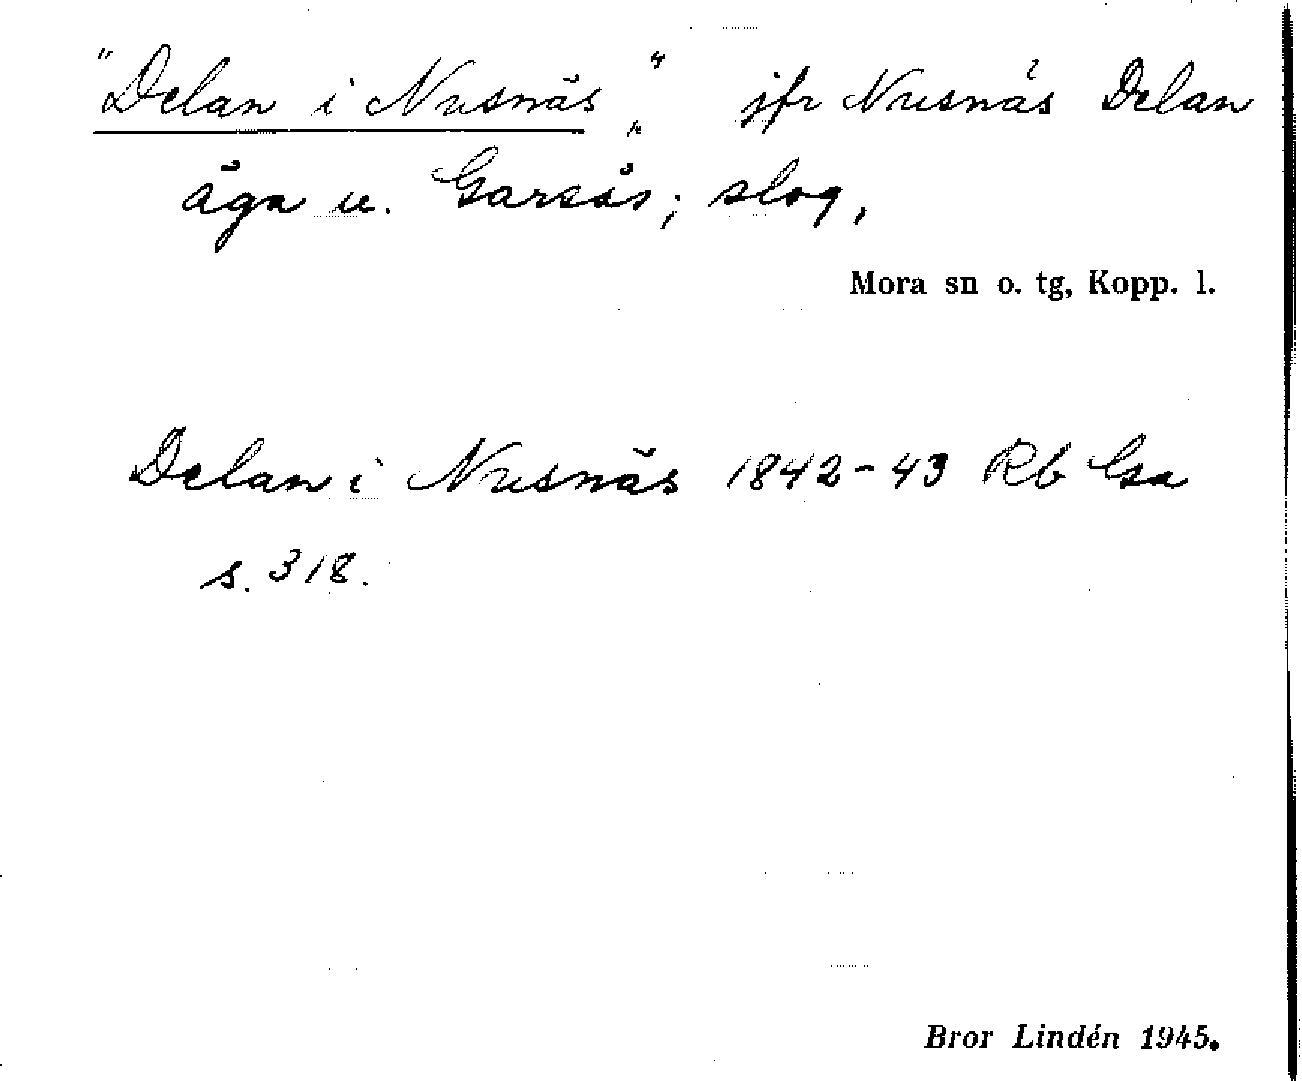 "Delan i Nusnäs," jfr Nusnäs Delan
äga u. Garsås; slog,
Mora sn o. tg, Kopp. l.
Delan i Nusnäs 1842-43 Rb Gsa
s. 318.
Bror Lindén 1945.